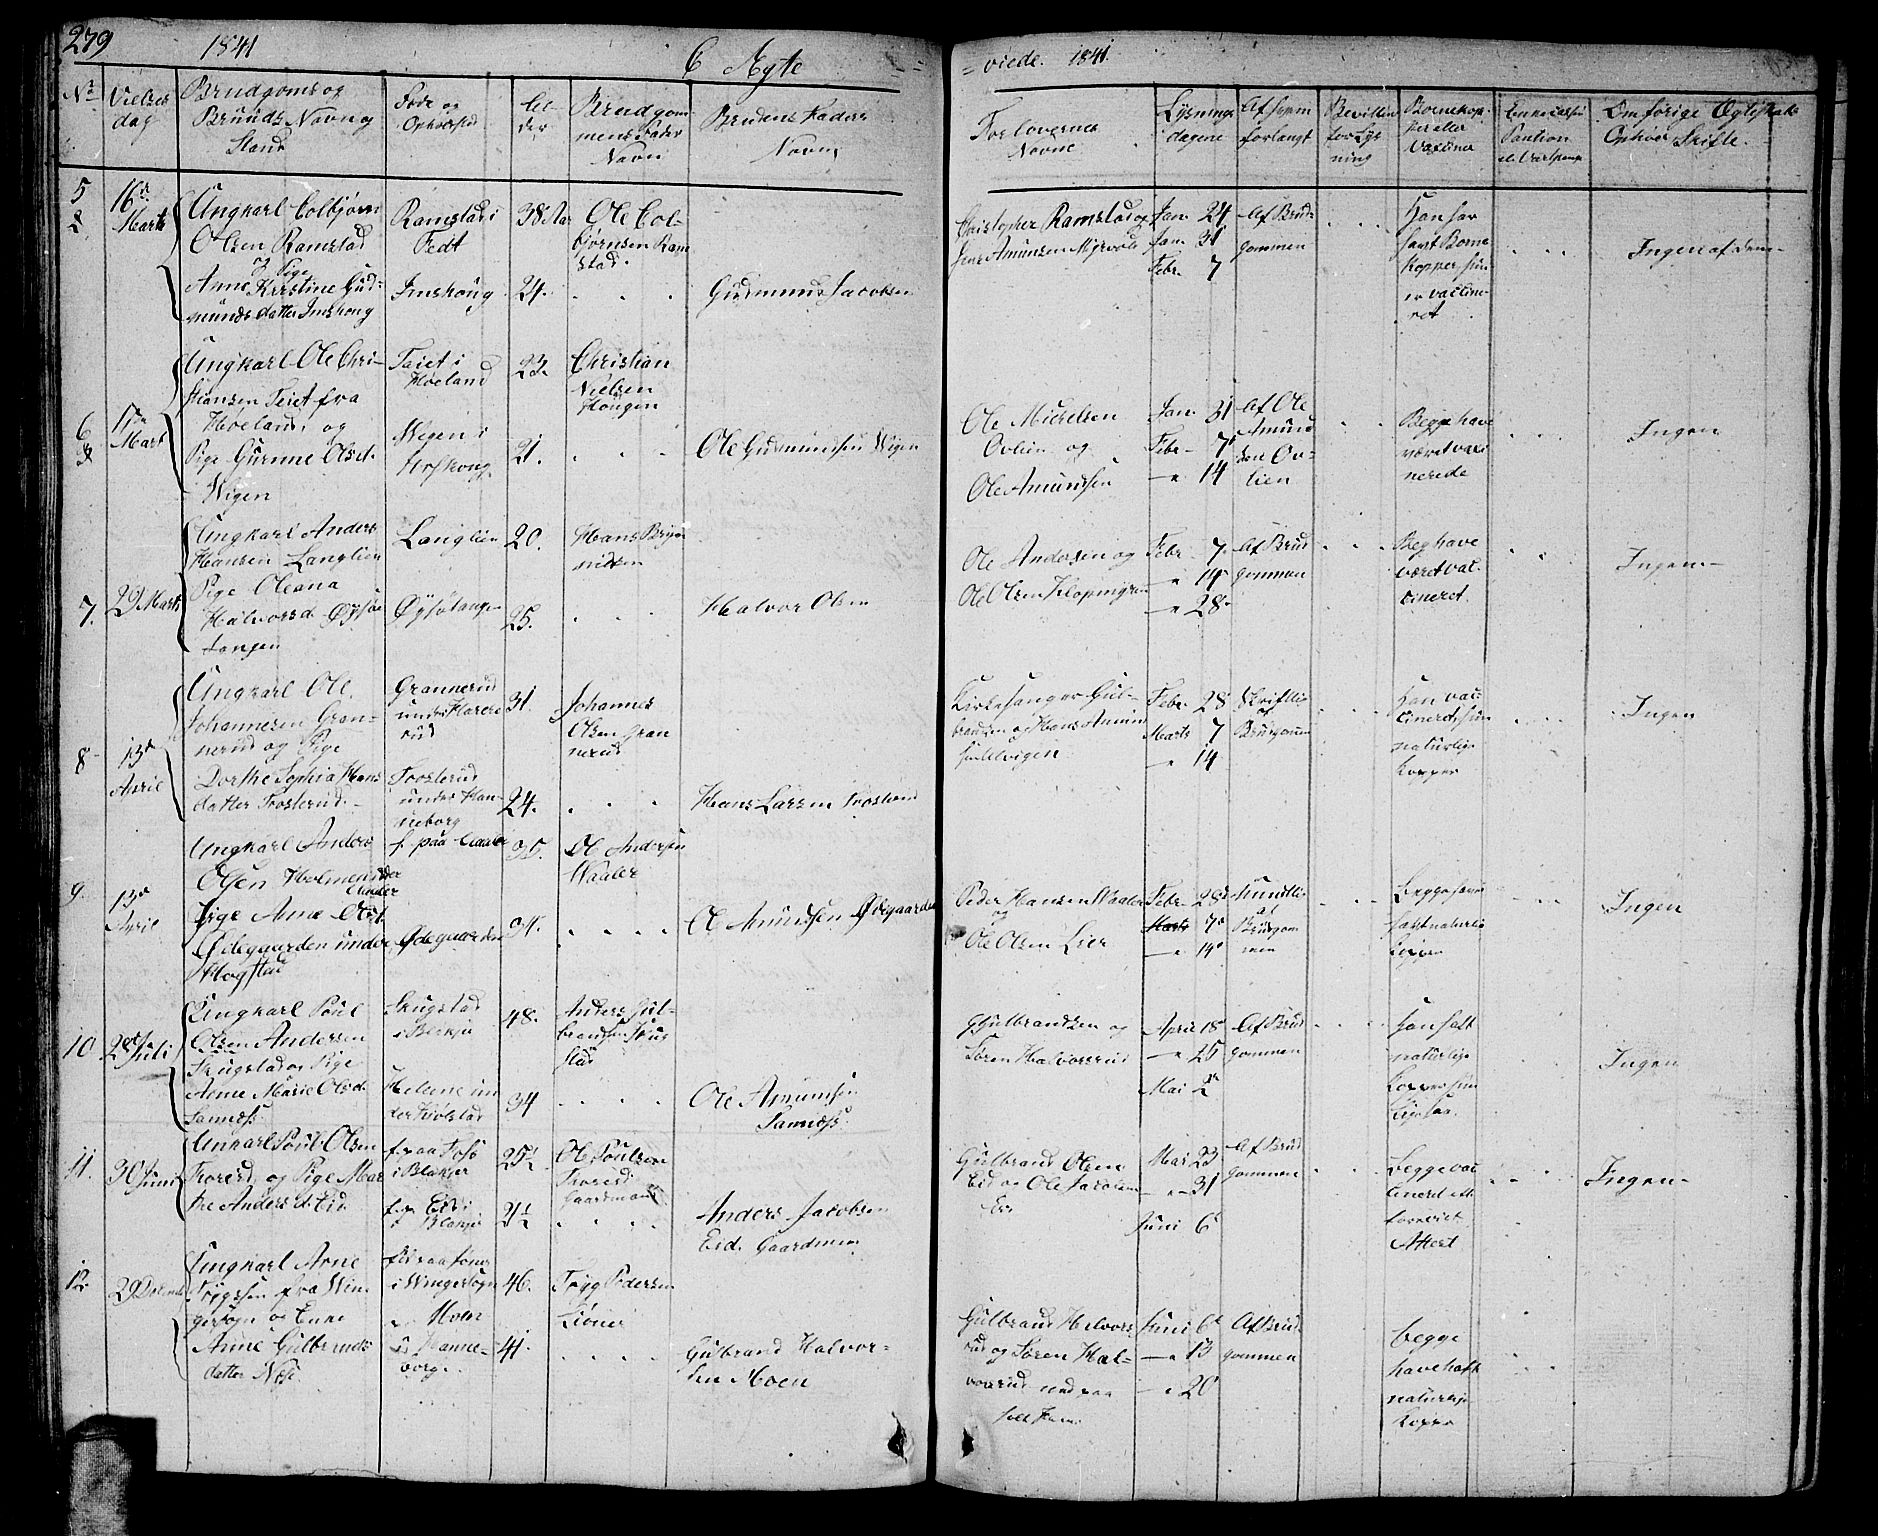 279 1841 6 Ægte = viede. 1841.
No Vielses dag
Brudgoms og Bruds Navn og Stand
Føde og Opholdsted
Al- der
Brudgom mens Fader Navn
Brudens Faders Navn
Forlovernes Navne
Lysnings dagene
Af hvem forlangt
Bevilling for Lys ning
Bornekop per eller Vaccine
Pantion
Om forige Ægteskab Ophør Skifte.
5 16de Marts
Ungkarl Colbjørn
Olsen Ramstad
og Pige
Anne Kirstine Gud-
munds datter Imshoug
Ramstad i Fedt
Imshoug
38 Aar
24.
Ole Col-
bjørnsen Ram
stad.
Gudmund Jacobsen
Christopher Ramstad og
Amunsen
Jan. 24
Jan. 31
Febr. 7
Af Brud-
gommen
Han har
havt Borne
kopper hun
er vaccine-
ret
Ingen af dem
6 17de Mart
Ungkarl Ole Chri-
stiansen Teiet fra
Høeland, og
Pige Gurine Olsd.
Wigen
Taiet i
Høeland
Wigen i
23.
21.
Christian
Nielsen
Haugen
Ole Gudmundsen Wigen
Ole Michelsen
Ovlien og
Ole Amundsen
Jan. 31
Febr. 7
— 14
Af Ole
Amund
sen Ov-
lien
Begge have
været vaxi
nerede
Ingen
7. 29 Marts
Ungkarl Anders
Hansen Langlien
Pige Oleana
Halvorsd. Øysø
tangen
Langlien
Øysøtangen
20.
25.
Hans Bryn
nildsen
Halvor Olsen
Ole Andersen og
Ole Olsen
Febr. 7.
— 14
— 28
Af Brud
gommen
Beg have
været vac-
cineret.
Ingen
8 13de April
Ungkarl Ole
Johannesen Gran-
nerud og Pige
Dorthe Sophia Hans
datter Trosterud.
Grannerud
under Harere
rud
Trosterud
under Han-
neborg
31.
24.
Johannes
Olsen Gran
nerud
Hans Larsen Trosterud
Kirkesanger Gul-
brandsen og Hans Amun
Febr. 28
Marts 7
— 14
Skriftlig
af
Brudgommen
Han vac-
cineret, hun
naturlige
kopper
Ingen
9. 13de April
Ungkarl Anders
Olsen Holmen
Pige Anne Olsd.
Ødegaarden under
Mogstad
Ødegaarden
35.
34.
Ole Andersen
Waaler
Ole Amundsen Ødegaarden
Peder Hansen Waaler
og
Ole Olsen Lier
Febr. 28
Marts 7
— 14
Mundtlig
af
Brudgom
men
Begge have
havt naturlig
kopper
Ingen
10 28de Juli
Ungkarl Poul
Olsen Andersen
Skugstad og Pige
Anne Marie Olsd.
Sannæss
Skugstad
i Blakjer
48.
34
Anders Gul-
brandsen Skug
stad
Ole Amundsen
Sannæss.
Gulbrandsen og
Søren Halvorsrud
April 18
— 25
Mai 2
Af Brud
gommen
Han havt
naturlige
Kopper hun
ligesaa.
Ingen
11. 30 Juni
Unkarl Poul Olsen
og Pige Mar
the Anders d. Eid
i Blakjer
25½
21½
Ole Poulsen
Gaardmand
Anders Jacobsen
Eid. Gaardmand
Gulbrand Olsen
Eid og Ole Jacobsen
Mai 23
— 31
Juni 6
Af Brud
gommen
Begge vac
cineret
Attest
Ingen
12 29 December
Ungkarl Arne
Tryggsen fra Win
gersogn og Enke
Anne Gulbrands-
datter Næs
i Wingersogn
Moen
u Hanne-
borg.
46.
41.
Trygg Pedersen
Gulbrand Halvor-
sen Moen
Gulbrand Halvors-
rud og Søren Hal-
vorsrud
Juni 6
— 13
— 20
Af Brud
gommen
Begge
have haft
naturlige
Kopper